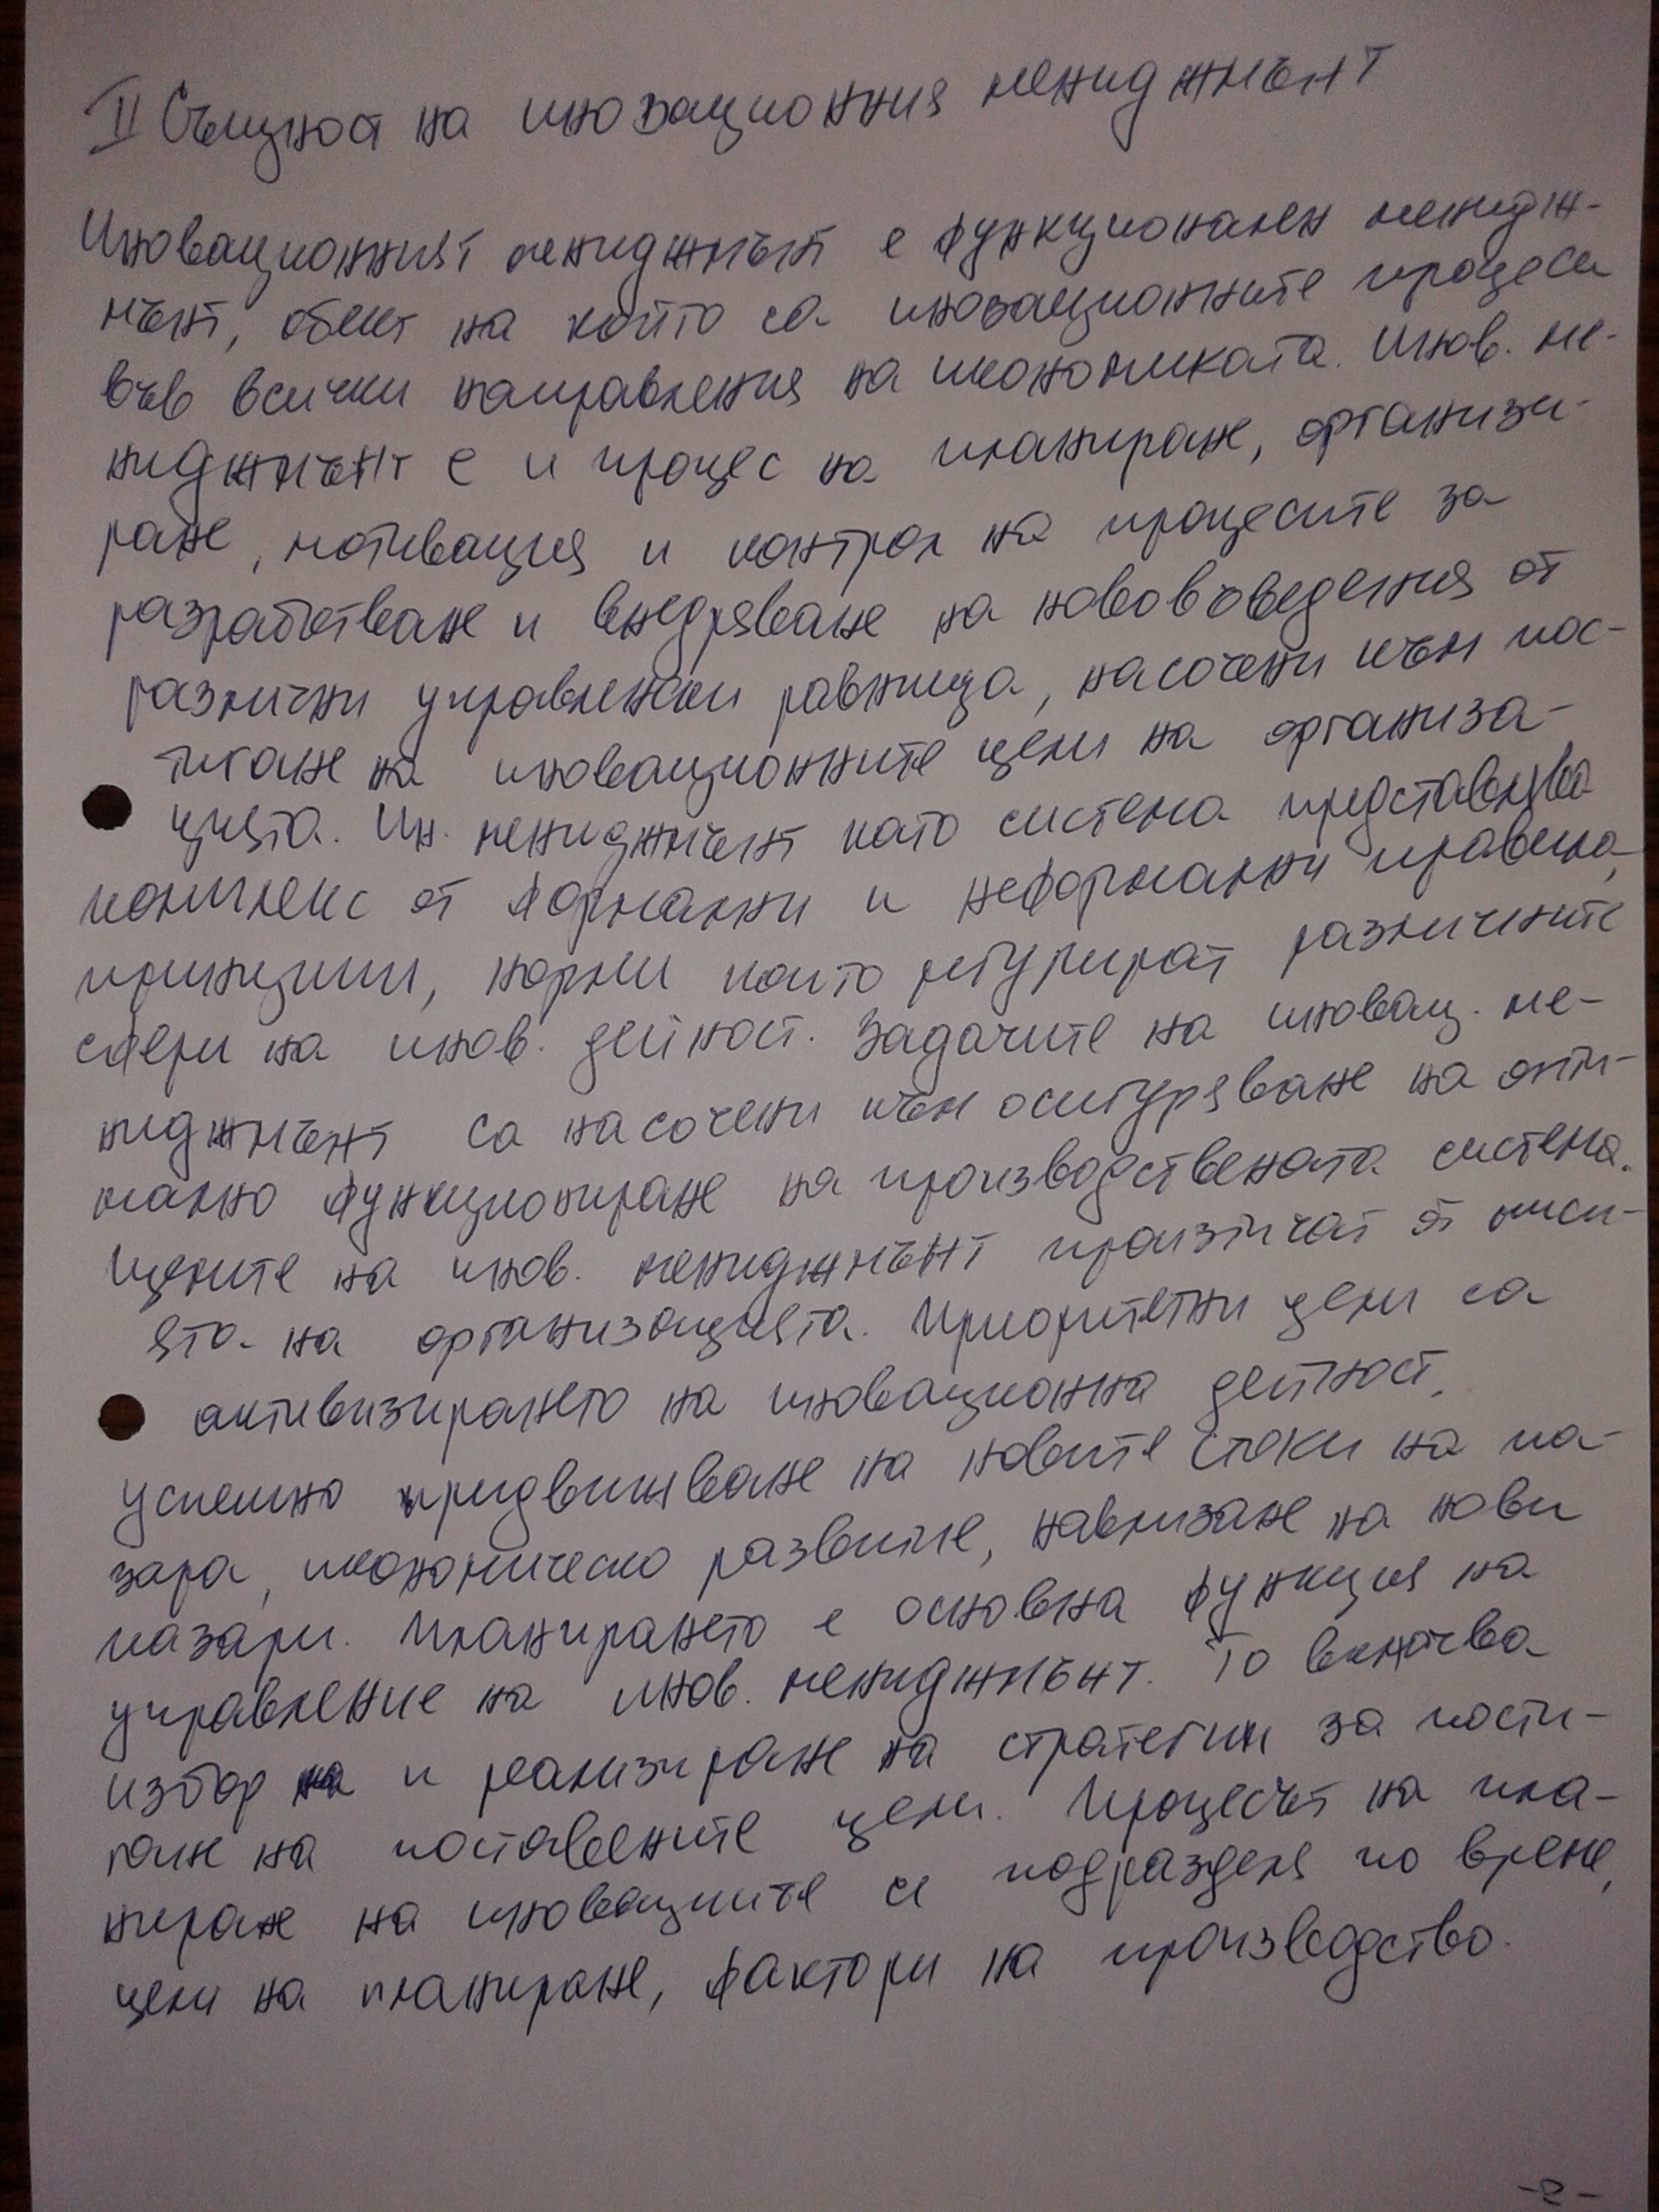 II Същност на иновационния мениджмънт
Иновационният мениджмънт е функционален менидж-
мънт, обект на който са иновационните процеси
във всички направления на икономиката. Инов. ме-
ниджмънт е и процес на планиране, организи-
ране, мотивация и контрол на процесите за
разработване и внедряване на нововъведения от
различни управленски равнища, насочени към пос-
тигане на иновационните цели на организа-
цията. Ин. мениджмънт като система представлява
комплекс от формални и неформални правила,
принципи, норми които регулират различните
сфери на инов. дейност. Задачите на иновац. ме-
ниджмънт са насочени към осигуряване на опти-
мално функциониране на производствената система.
Целите на инов. мениджмънт произтичат от миси-
ята на организацията. Приоритетни цели са
активизирането на иновационна дейност,
успешно придвижване на новите стоки на па-
зара, икономическо развитие, навлизане на нови
пазари. Планирането е основна функция на
управление на инов. мениджмънт. То включва
избор и реализиране на стратегии за пости-
гане на поставените цели. Процесът на пла-
ниране на иновациите се подразделя по време,
цели на планиране, фактори на производство.
-2-